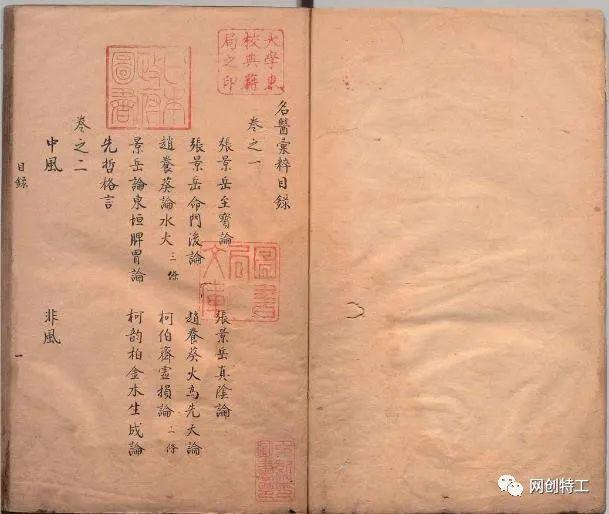 大學東校典籍局之印
日本政府圖書
名醫彙粹目錄
卷之一
張景岳至寶論 張景岳真陰論
張景岳命門後論 趙養葵火為先天論
趙養葵論水火三條 柯伯齋虛損論二條
景岳論東垣脾胃論 柯韵柏金水生成論
先哲格言
卷之二
中風 非風
目錄 一
圖書局文庫
网创特工